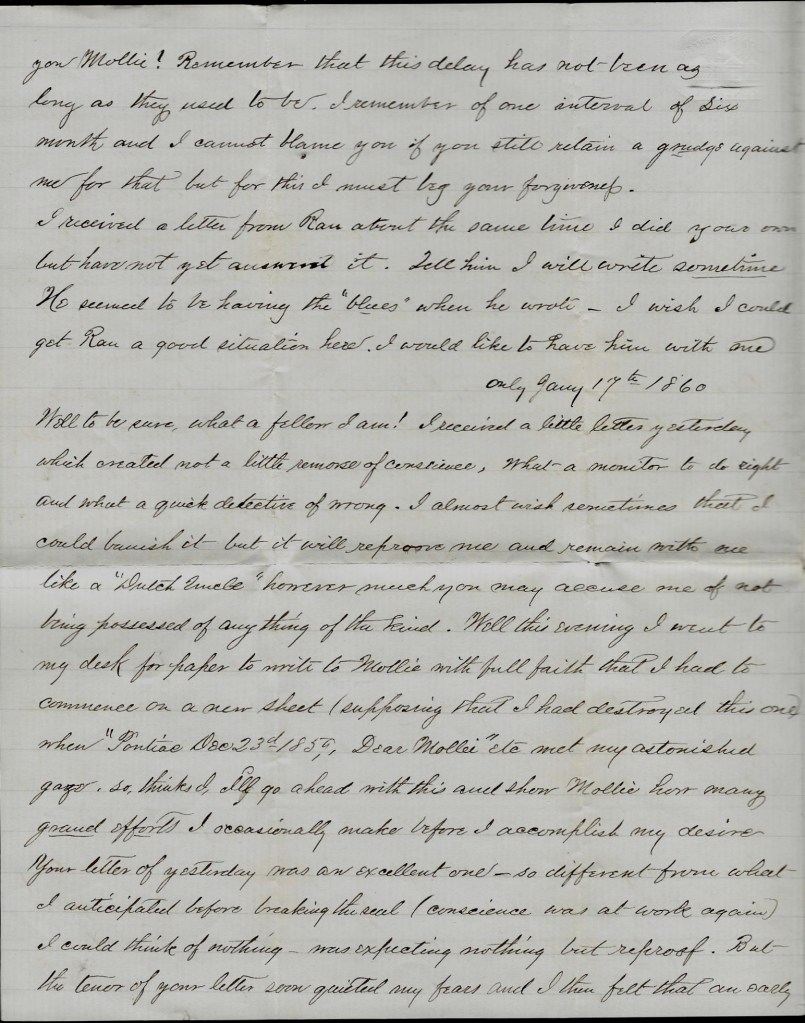 you Mollie! Remember that this delay has not been as
long as they used to be. I remember of one interval of Six
month and I cannot blame you if you still retain a grudge against
me for that but for this I must beg your forgiveness.
I received a letter from Ran about the same time I did your own
but have not yet answerd it. Tell him I will write sometime
He seemed to be having the "blues" when he wrote - I wish I could
get Ran a good situation here. I would like to have him with me
only Jany 17th 1860
Well to be sure, what a fellow I am! I received a little letter yesterday
which created not a little remorse of conscience, What a monitor to do right
and what a quick detective of wrong. I almost wish sometimes that I
could banish it but it will reproove me and remain with me
like a "Dutch Uncle" however much you may accuse me of not
being possessed of any thing of the kind. Well this evening I went to
my desk for paper to write to Mollie with full faith that I had to
commence on a new sheet (supposing that I had destroyed this one)
when "Pontiac Dec 23d 1859, Dear Mollie" etc met my astonished
gaze. so, thinks I, I'll go ahead with this and show Mollie how many
grand efforts I occasionally make before I accomplish my desire
Your letter of yesterday was an excellent one - so different from what
I anticipated before breaking the seal (conscience was at work again)
I could think of nothing - was expecting nothing but reproof. But
the tenor of your letter soon quieted my fears and I then felt that an early